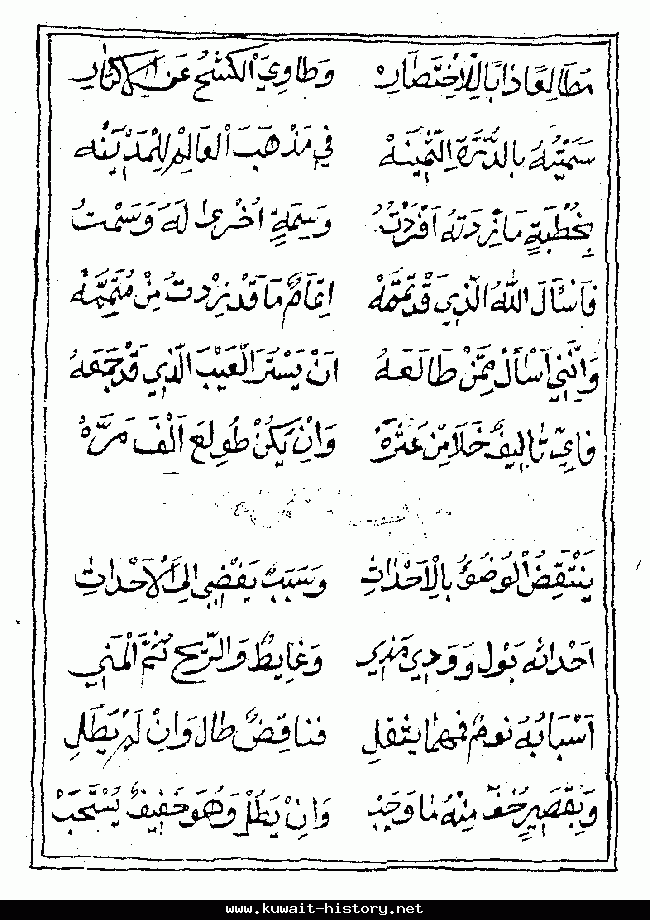 مُطَالِعًا ذَا بَالِاخْتِصَارِ وَطَاوِيَ الْكَشْحِ عَنِ الْإِكْثَارِ
سَمَّيْتُهُ بِالدُّرَّةِ الثَّمِينَهْ فِي مَذْهَبِ الْعَالِمْ لِلْمَدِينَهْ
بِخُطْبَةٍ مَا زِدْتَهُ أَفْرَدْتُ وَسِيمَةٍ أُخْرَى لَهُ وَسَمْتُ
فَأَسْأَلُ اللهَ الَّذِي قَدْ تَمَّمَهْ إِتْمَامَ مَا قَدْ زِدْتُ مِنْ مُتَمِّمَهْ
وَإِنَّنِي أَسْأَلُ مِمَّنْ طَالَعَهْ أَنْ يَسْتُرَ الْعَيْبَ الَّذِي قَدْ جَمَعَهْ
فَأَيُّ تَأْلِيفٍ خَلَا مِنْ عَثْرَهْ وَإِنْ يَكُنْ طُولِعَ أَلْفَ مَرَّهْ
يَنْتَقِضُ الْوُضُوءُ بِالْأَحْدَاثِ وَسَبَبٌ يُفْضِي إِلَى الْأَحْدَاثِ
أَحْدَاثُهُ بَوْلٌ وَوَدْيٌ مَذْيِ وَغَايِطٌ وَالرِّيحُ ثُمَّ الْمَنْيِ
أَسْبَابُهُ نَوْمٌ فَمَهْمَا يَثْقُلِ فَنَاقِضٌ طَالَ وَإِنْ لَمْ يَطُلِ
وَبِقَصِيرٍ خَفَّ مِنْهُ مَا وَجَبْ وَإِنْ يَطُلْ وَهُوَ خَفِيفٌ يُسْتَحَبْ
www.kuwait-history.net